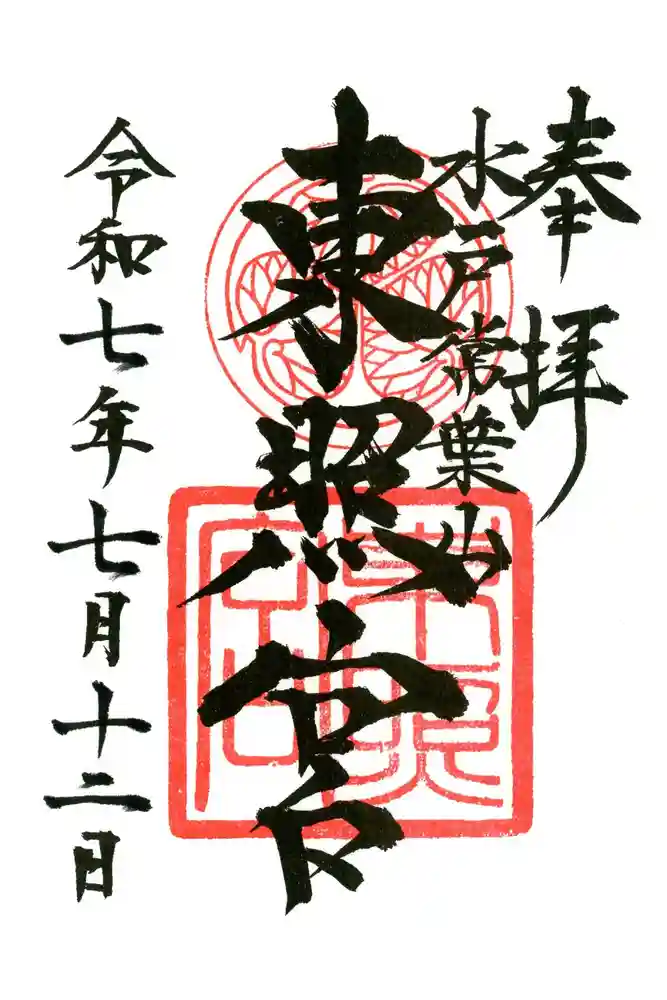 奉拝
水戸常葉山
東照宮
令和七年七月十二日